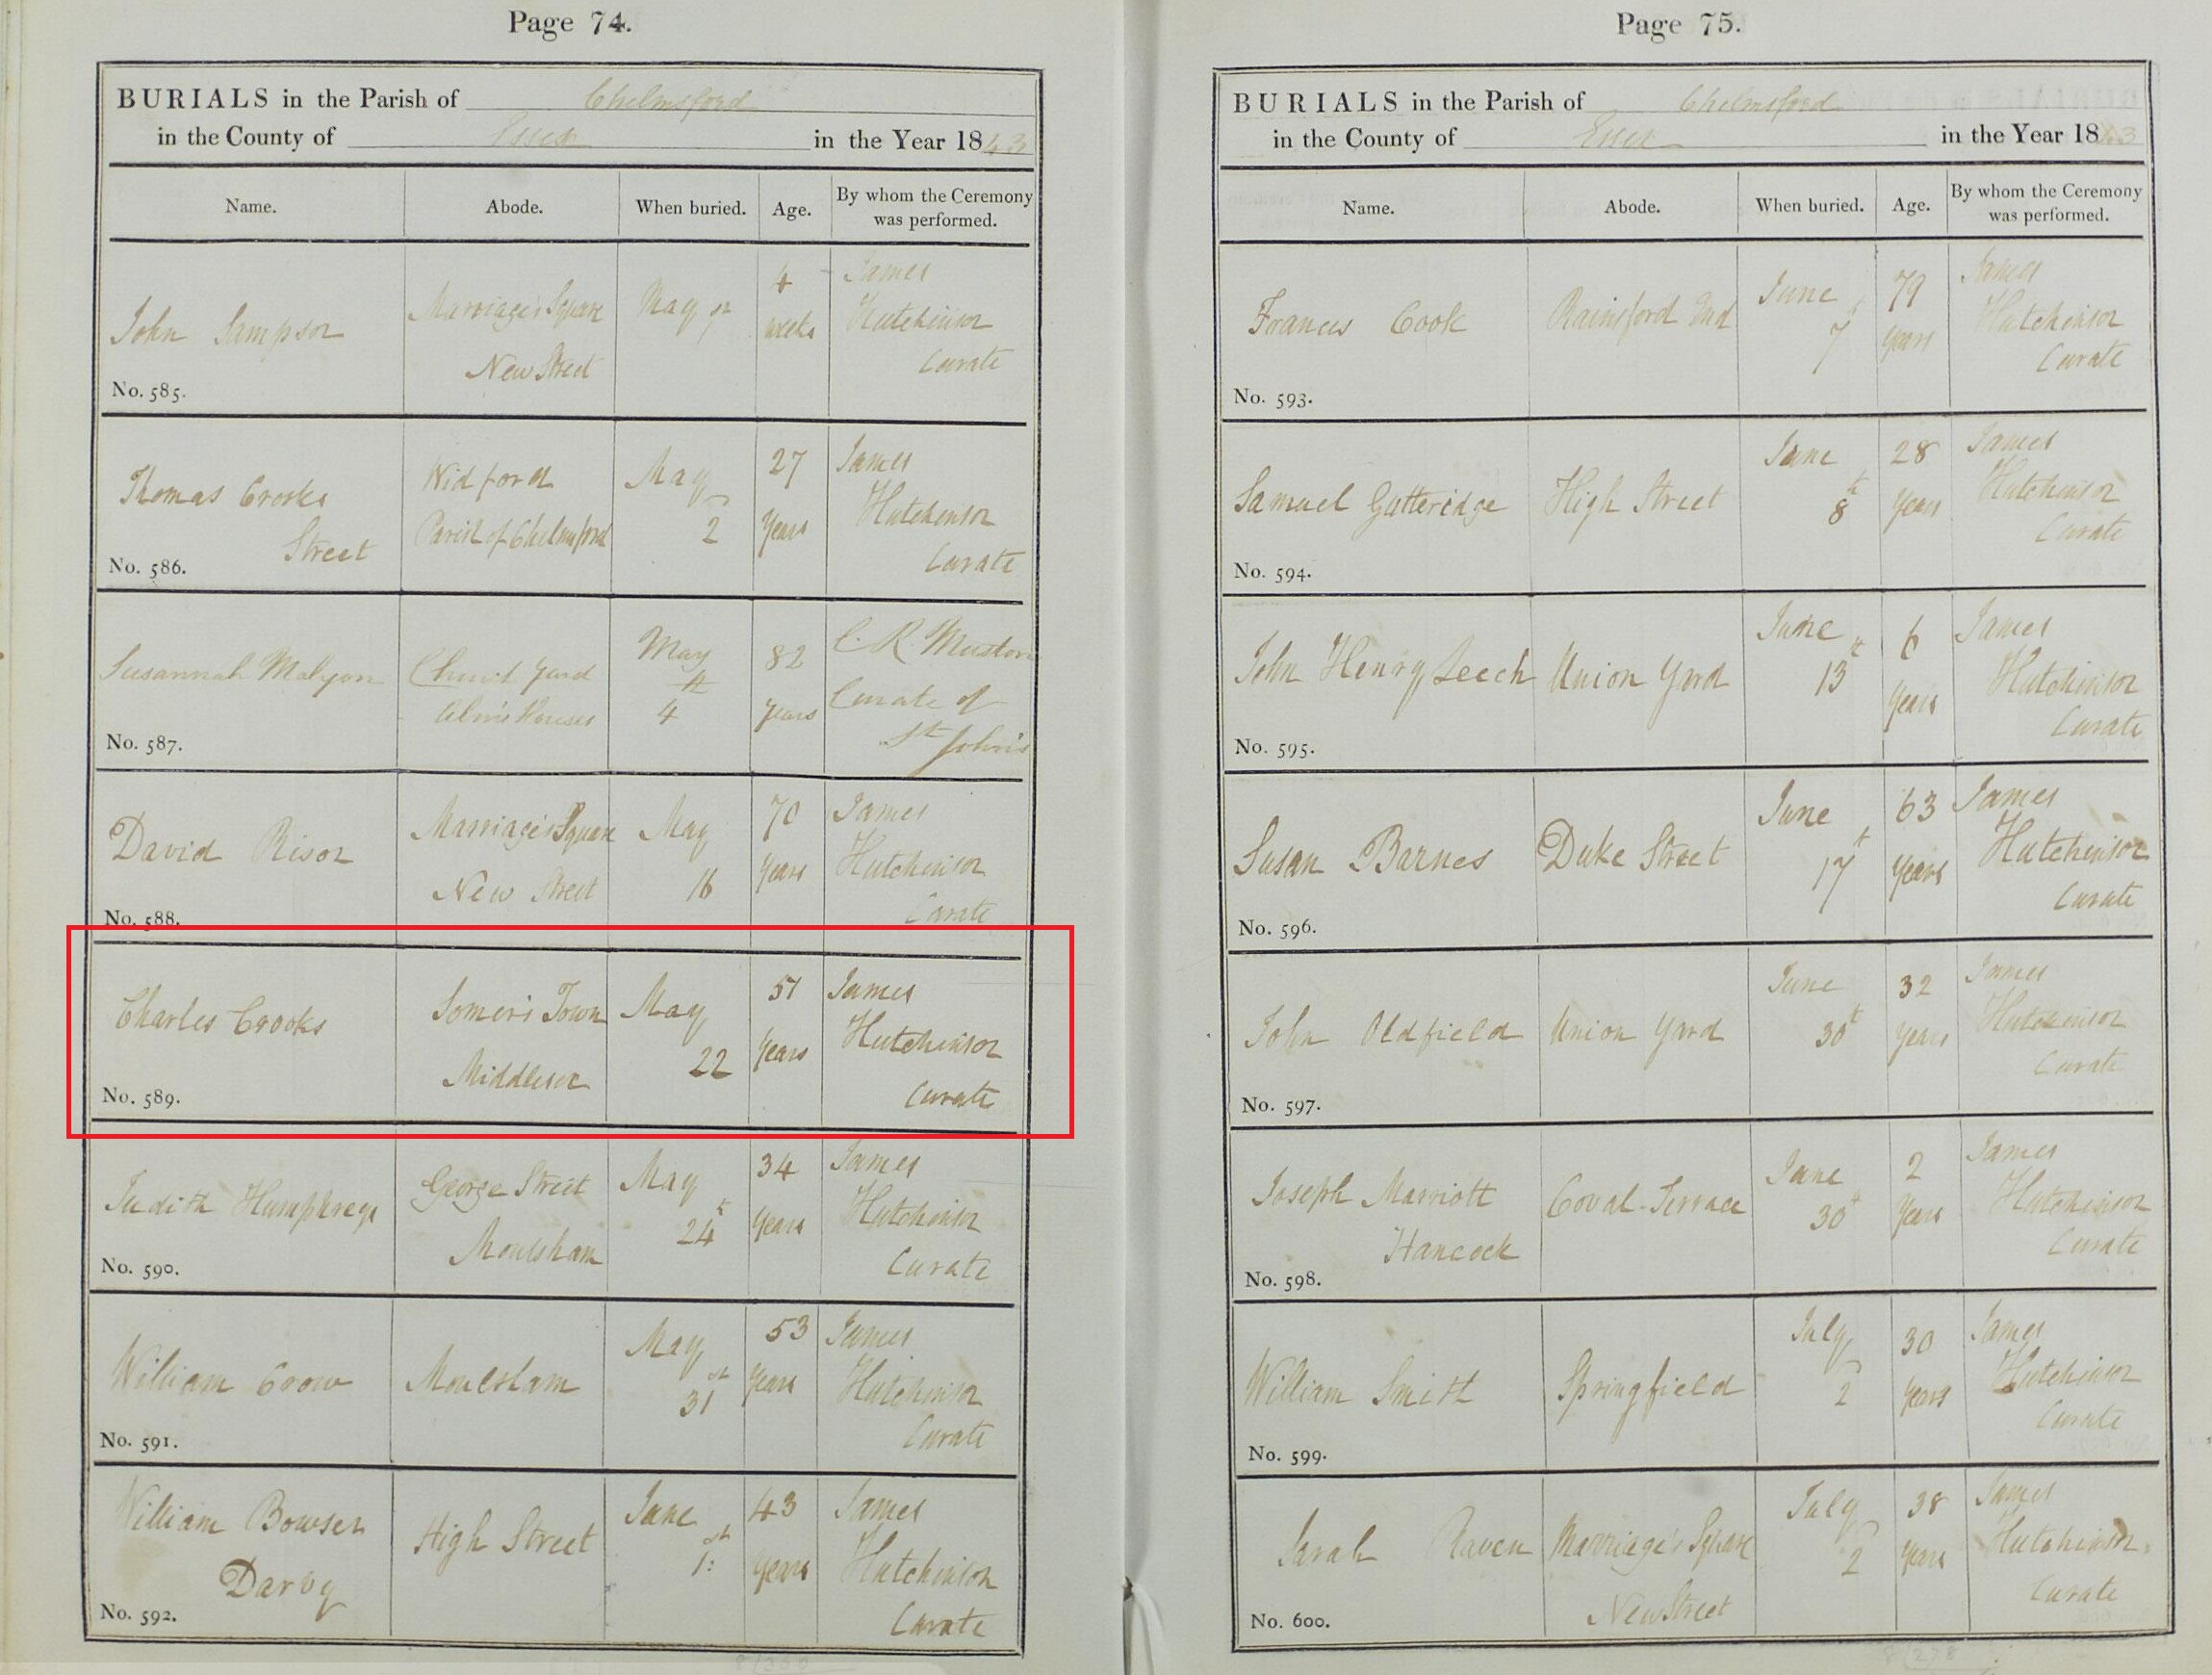 Page 74.
BURIALS in the Parish of Chelmsford
in the County of Essex in the Year 1843
Name. Abode. When buried. Age. By whom the Ceremony was performed.
John Sampson Marriage's Square New Street May 4 weeks James Hutchinson Curate
No. 585.
Thomas Crooks Street Widford Parish of Chelmsford May 2 27 Years James Hutchinson Curate
No. 586.
Susannah Malyon Church Yard Alms Houses May 4th 82 Years C. R. Muston Curate of St John's
No. 587.
David Risor Marriage's Square New Street May 16 70 Years James Hutchinson Curate
No. 588.
Charles Crooks Somers Town Middlesex May 22 51 Years James Hutchinson Curate
No. 589.
Judith Humphreys George Street Moulsham May 24t 34 Years James Hutchinson Curate
No. 590.
William Crow Moulsham May 31st 53 Years James Hutchinson Curate
No. 591.
William Bowser Darby High Street June 1st 43 Years James Hutchinson Curate
No. 592.
Page 75.
BURIALS in the Parish of Chelmsford
in the County of Essex in the Year 1843
Name. Abode. When buried. Age. By whom the Ceremony was performed.
Frances Cook Rainsford End June 7 79 Years James Hutchinson Curate
No. 593.
Samuel Gutteridge High Street June 8t 28 Years James Hutchinson Curate
No. 594.
John Henry Leech Union Yard June 13t 6 Years James Hutchinson Curate
No. 595.
Susan Barnes Duke Street June 17t 63 Years James Hutchinson Curate
No. 596.
John Oldfield Union Yard June 30t 32 Years James Hutchinson Curate
No. 597.
Joseph Marriott Hancock Coval Terrace June 30t 2 Years James Hutchinson Curate
No. 598.
William Smith Springfield July 2 30 Years James Hutchinson Curate
No. 599.
Sarah Raven Marriage's Square New Street July 2 38 Years James Hutchinson Curate
No. 600.